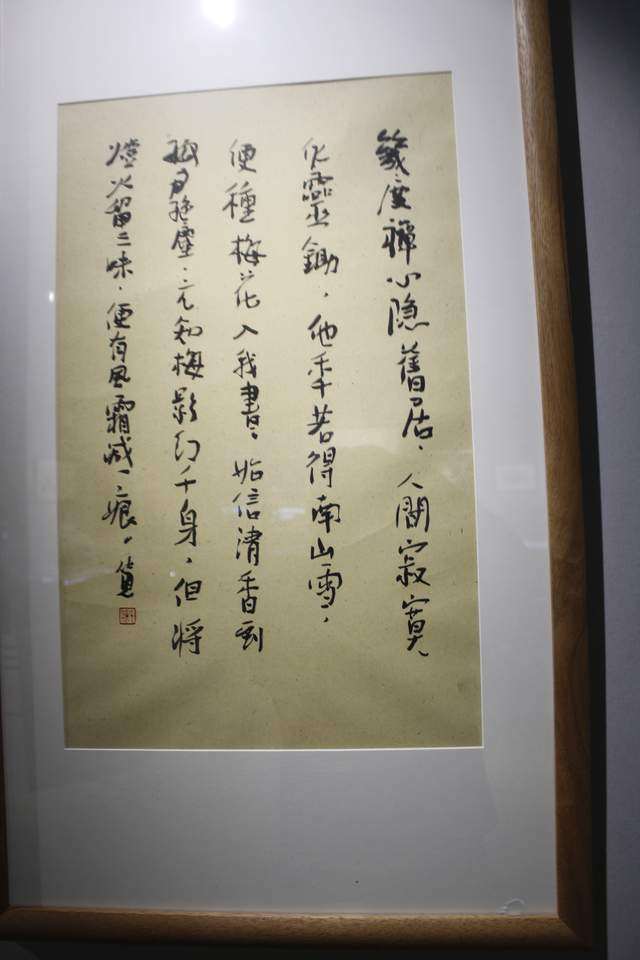 几度禪心隐舊居、人間寂寞
化靈鋤，他年若得南山雪，
便種梅花入我書。始信清香到
極絕塵、元知梅影幻千身，但将
燈火留三味，便有风霜减一痕。